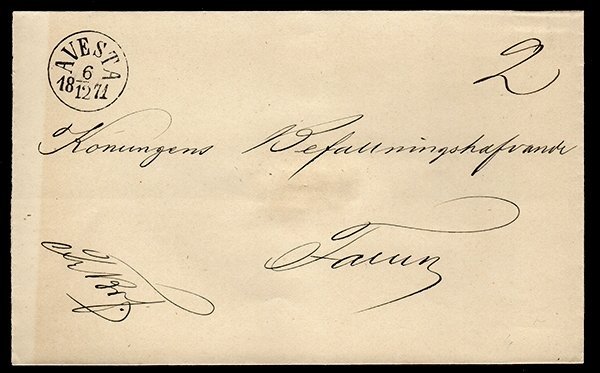 AVESTA
6
18 12 71
2
Konungens Befallningshafvande
Falun